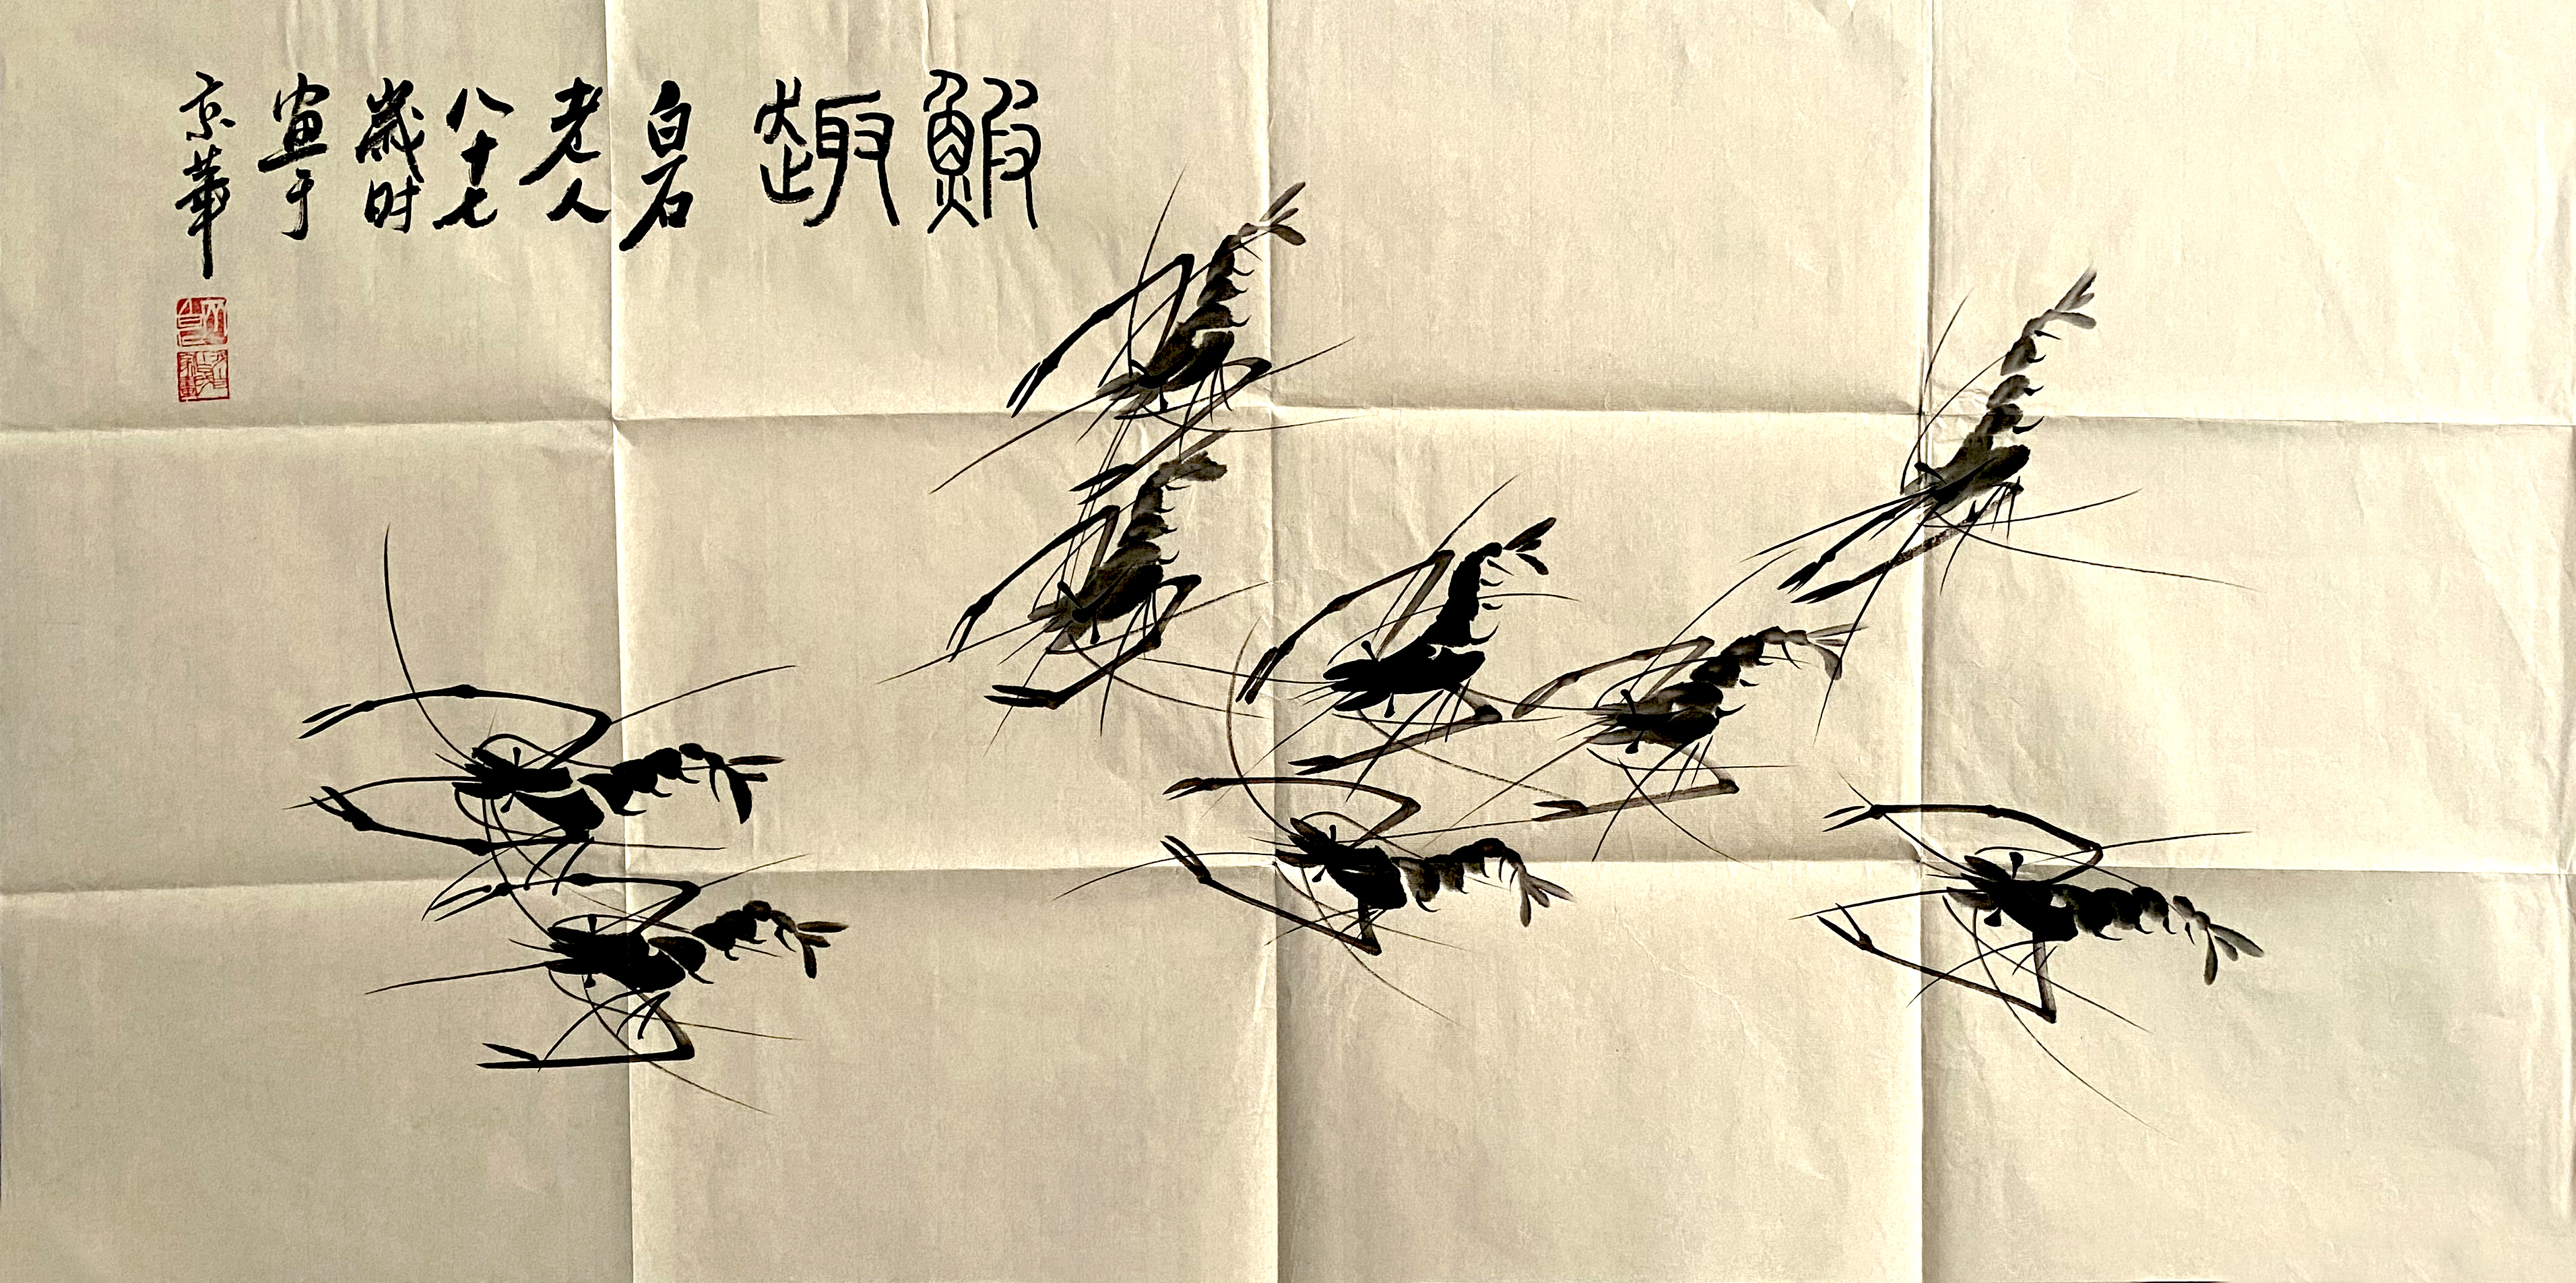 鰕趣
白石
老人
八十七
歲时
画于
京華